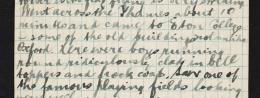 Went across the Thames about 10
minutes and came to Eton College
- some of the old buildings not unlike
Oxford. Here were boys running
round ridiculously clad in bell
toppers and frock coats. Saw one of
the famous playing fields looking